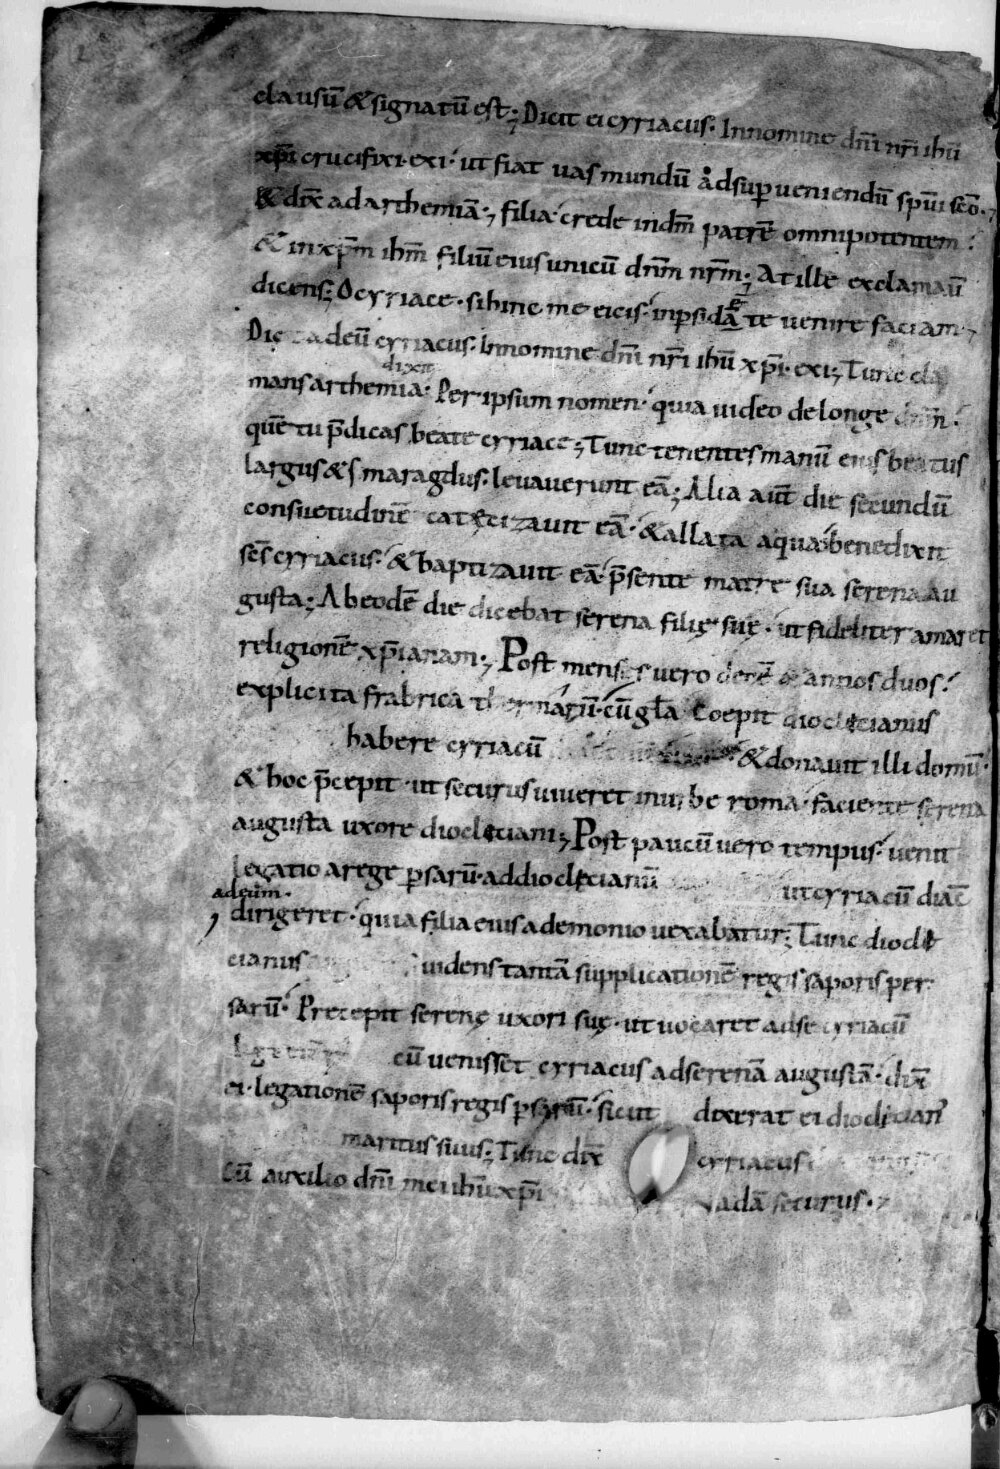 clausū & signatū est; Dicit ei cyriacus. Innomine dn̄i nr̄i ihū
xp̄i crucifixi. exi. ut fiat uas mundū adsuperueniendū sp̄ui sc̄o.
& dix̄ ad arthemiā; filia crede in dm̄ patrē omnipotentem.
& in xp̄m ihm̄ filiū eius unicū dnm̄ nrm̄; At ille exclamauit
dicens; O cyriace. si hinc me eicis. in persidā te uenire faciam;
Dic ad eū cyriacus. Innomine dn̄i nr̄i ihū xp̄i. exi; Tunc cla
dixit
mans arthemia. Per ipsum nomen. quia uideo de longe dnm̄.
quē tu p̄dicas beate cyriace; Tunc tenentes manū eius beatus
largus & smaragdus. leuauerunt eā; Alia aūt die secundū
consuetudinē catęcizauit eā. & allata aqua benedixit
sc̄s cyriacus. & baptizauit eā. p̄sente matre sua serena au
gusta; Ab eodē die dicebat serena filię suę. ut fideliter amaret
religionē xp̄ianam; Post menses uero decē & annos duos.
explicita frabrica thermarū. cū gl̄a coepit dioclecianus
habere cyriacū & donauit illi domū.
& hoc p̄cepit. ut securus uiueret in urbe roma. faciente serena
augusta uxore diocleciani; Post paucū uero tempus. uenit
legatio a rege persarū. ad dioclecianū ut cyriacū diac̄
ad eum.
dirigeret. quia filia eius a demonio uexabatur; Tunc diocle
cianus uidens tantā supplicationē regis saporis per
sarū. Precepit serenę uxori suę. ut uocaret ad se cyriacū
cū uenisset cyriacus ad serenā augustā. dix̄
ei. legationē saporis regis persarū. sicut dixerat ei dioclecian'
maritus suus; Tunc dix̄ cyriacus
Cū auxilio dn̄i mei ihū xp̄i uadā securus.